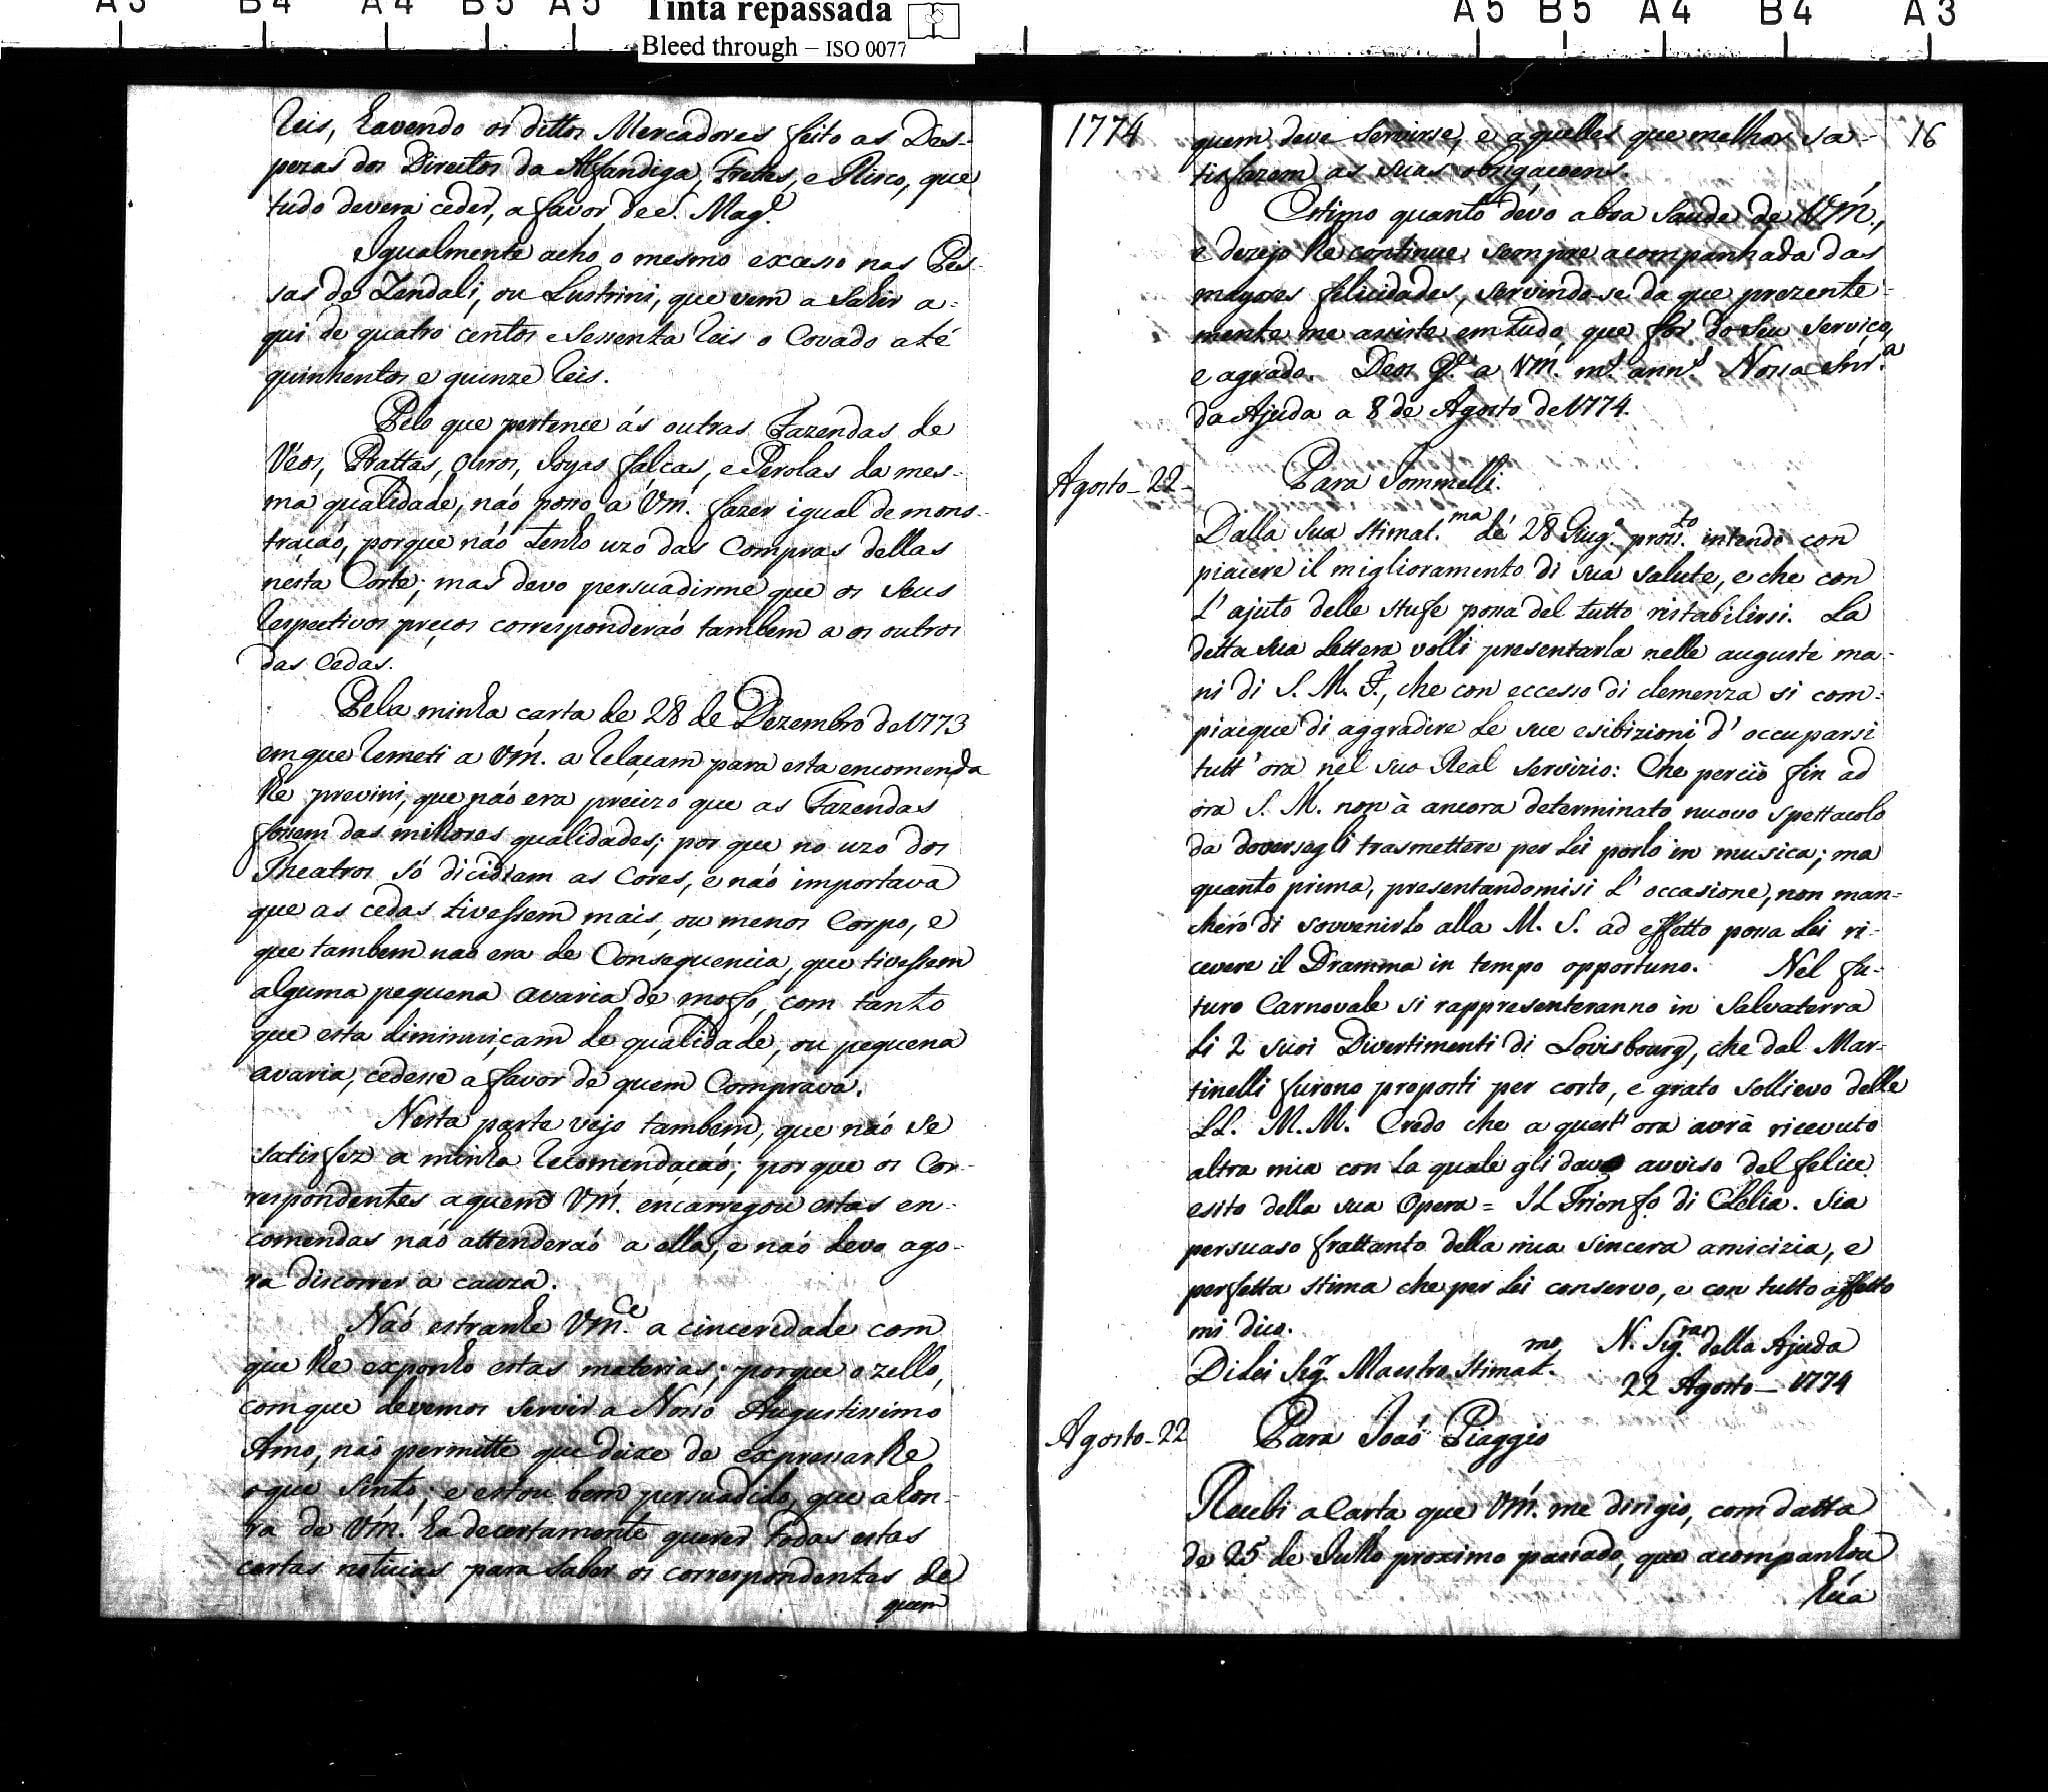 A3 B4 A4 B5 A5 Tinta repassada A5 B5 A4 B4 A3
Bleed through – ISO 0077
Reis, havendo os dittos Mercadores feito as Des-
pezas dos Direitos da Alfandiga, Fretes, e Risco, que
tudo deverá ceder, a favor de S. Mag.e
Igualmente acho o mesmo excesso nas Pes-
sas de Zendali, ou Lustrini, que vem a sahir a-
qui de quatro centos e sessenta reis o Covado até
quinhentos e quinze reis.
Pelo que pertence ás outras Fazendas de
Véos, Prattas, Ouros, Joyas falças, e Perolas da mes-
ma qualidade, naó posso a Vm. fazer igual demons-
traçaó, porque naó tenho uzo das Compras dellas
nésta Corte; mas devo persuadirme que os seus
respectivos préços corresponderaó tambem a os outros
das cedas.
Pela minha carta de 28 de Dezembro de 1773
em que remeti a Vm. a relaçam para esta encomenda
lhe previni, que naó era precizo que as Fazendas
fossem das milhores qualidades; por que no uzo dos
Theatros só dicidiam as Cores, e naó importava
que as cedas tivessem mais, ou menos Corpo, e
que tambem nao era de Consequencia, que tivessem
alguma pequena avaria de mofo, com tanto
que esta diminuiçam de qualidade, ou pequena
avaria, cedesse a favor de quem Comprava.
Nesta parte vejo tambem, que naó se
satisfez a minha recomendaçaó; por que os Cor-
respondentes a quem Vm. encarregou estas en-
comendas naó attenderaó a ella, e naó devo ago-
ra discorrer a cauza.
Naó estranhe Vm.ce a cinceridade com
que lhe exponho estas materias; porque o zello,
com que devemos servir a Nosso Augustissimo
Amo, naó permitte que deixe de expressarlhe
o que sinto; e estou bem persuadido, que a hon-
ra de Vm. ha de certamente querer todas estas
certas noticias para saber os correspondentes de
quem
1774
16
quem deve servirse, e aquelles que melhor sa-
tisfazem as suas obrigaçoens.
Estimo quanto dévo a boa saude de Vm.,
e dezejo lhe continue sempre acompanhada das
mayores felicidades, servindo-se da que prezente-
mente me assiste em tudo que for do seu serviço,
e agrado. Deos g.e a Vm. m.s ann.s Nossa Snr.a
da Ajuda a 8 de Agosto de 1774.
Agosto - 22 -
Para Jommelli.
Dalla sua stimat.ma de' 28 Giug.o pross.to intendo con
piacere il miglioramento di sua salute, e che con
l' ajuto delle stufe possa del tutto ristabilirsi. La
detta sua Lettera volli presentarla nelle auguste ma-
ni di S. M. F., che con eccesso di clemenza si com-
piacque di aggradire le sue esibizioni d' occuparsi
tutt' ora nel suo Real servizio: Che perciò fin ad
ora S. M. non à ancora determinato nuovo spettacolo
da doversegli trasmettere per Lei porlo in musica; ma
quanto prima, presentandomisi l' occasione, non man-
cheró di sovvenirlo alla M. S. ad effetto possa Lei ri-
cevere il Dramma in tempo opportuno. Nel fu-
turo Carnovale si rappresenteranno in Salvaterra
li 2 suoi Divertimenti di Lovisbourg, che dal Mar-
tinelli furono proposti per corto, e grato sollievo delle
LL. M.M. Credo che a quest' ora avrà ricevuto
altra mia con la quale gli davo avviso del felice
esito della sua Opera = Il Trionfo di Clelia. Sia
persuaso frattanto della mia sincera amicizia, e
perfetta stima che per Lei conservo, e con tutto affetto
mi dico.
Di Lei Sig.r Maestro Stimat.mo N. Sig.ra della Ajuda
22 Agosto - 1774
Agosto - 22
Para Joaó Piaggio
Recebi a Carta que Vm. me dirigio, com datta
de 25 de Julho proximo passado, que acompanhou
húa